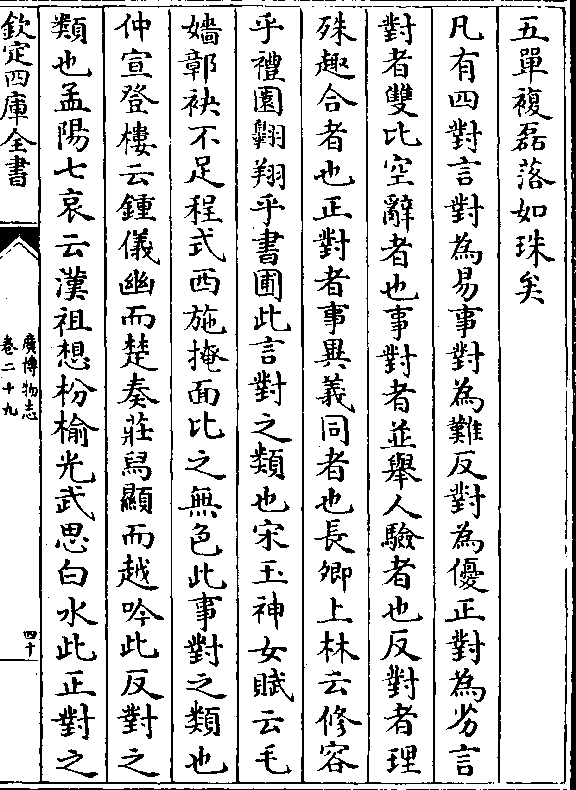 五單複磊落如珠矣
凡有四對言對為易事對為難反對為優正對為劣言
對者雙比空辭者也事對者並舉人驗者也反對者理
殊趣合者也正對者事異義同者也長卿上林云修容
乎禮園翺翔乎書圃此言對之類也宋玉神女賦云毛
嬙鄣袂不足程式西施掩面比之無色此事對之類也
仲宣登樓云鍾儀幽而楚奏莊舄顯而越吟此反對之
類也孟陽七哀云漢祖想枌榆光武思白水此正對之
欽定四庫全書
廣博物志
卷二十九
四十